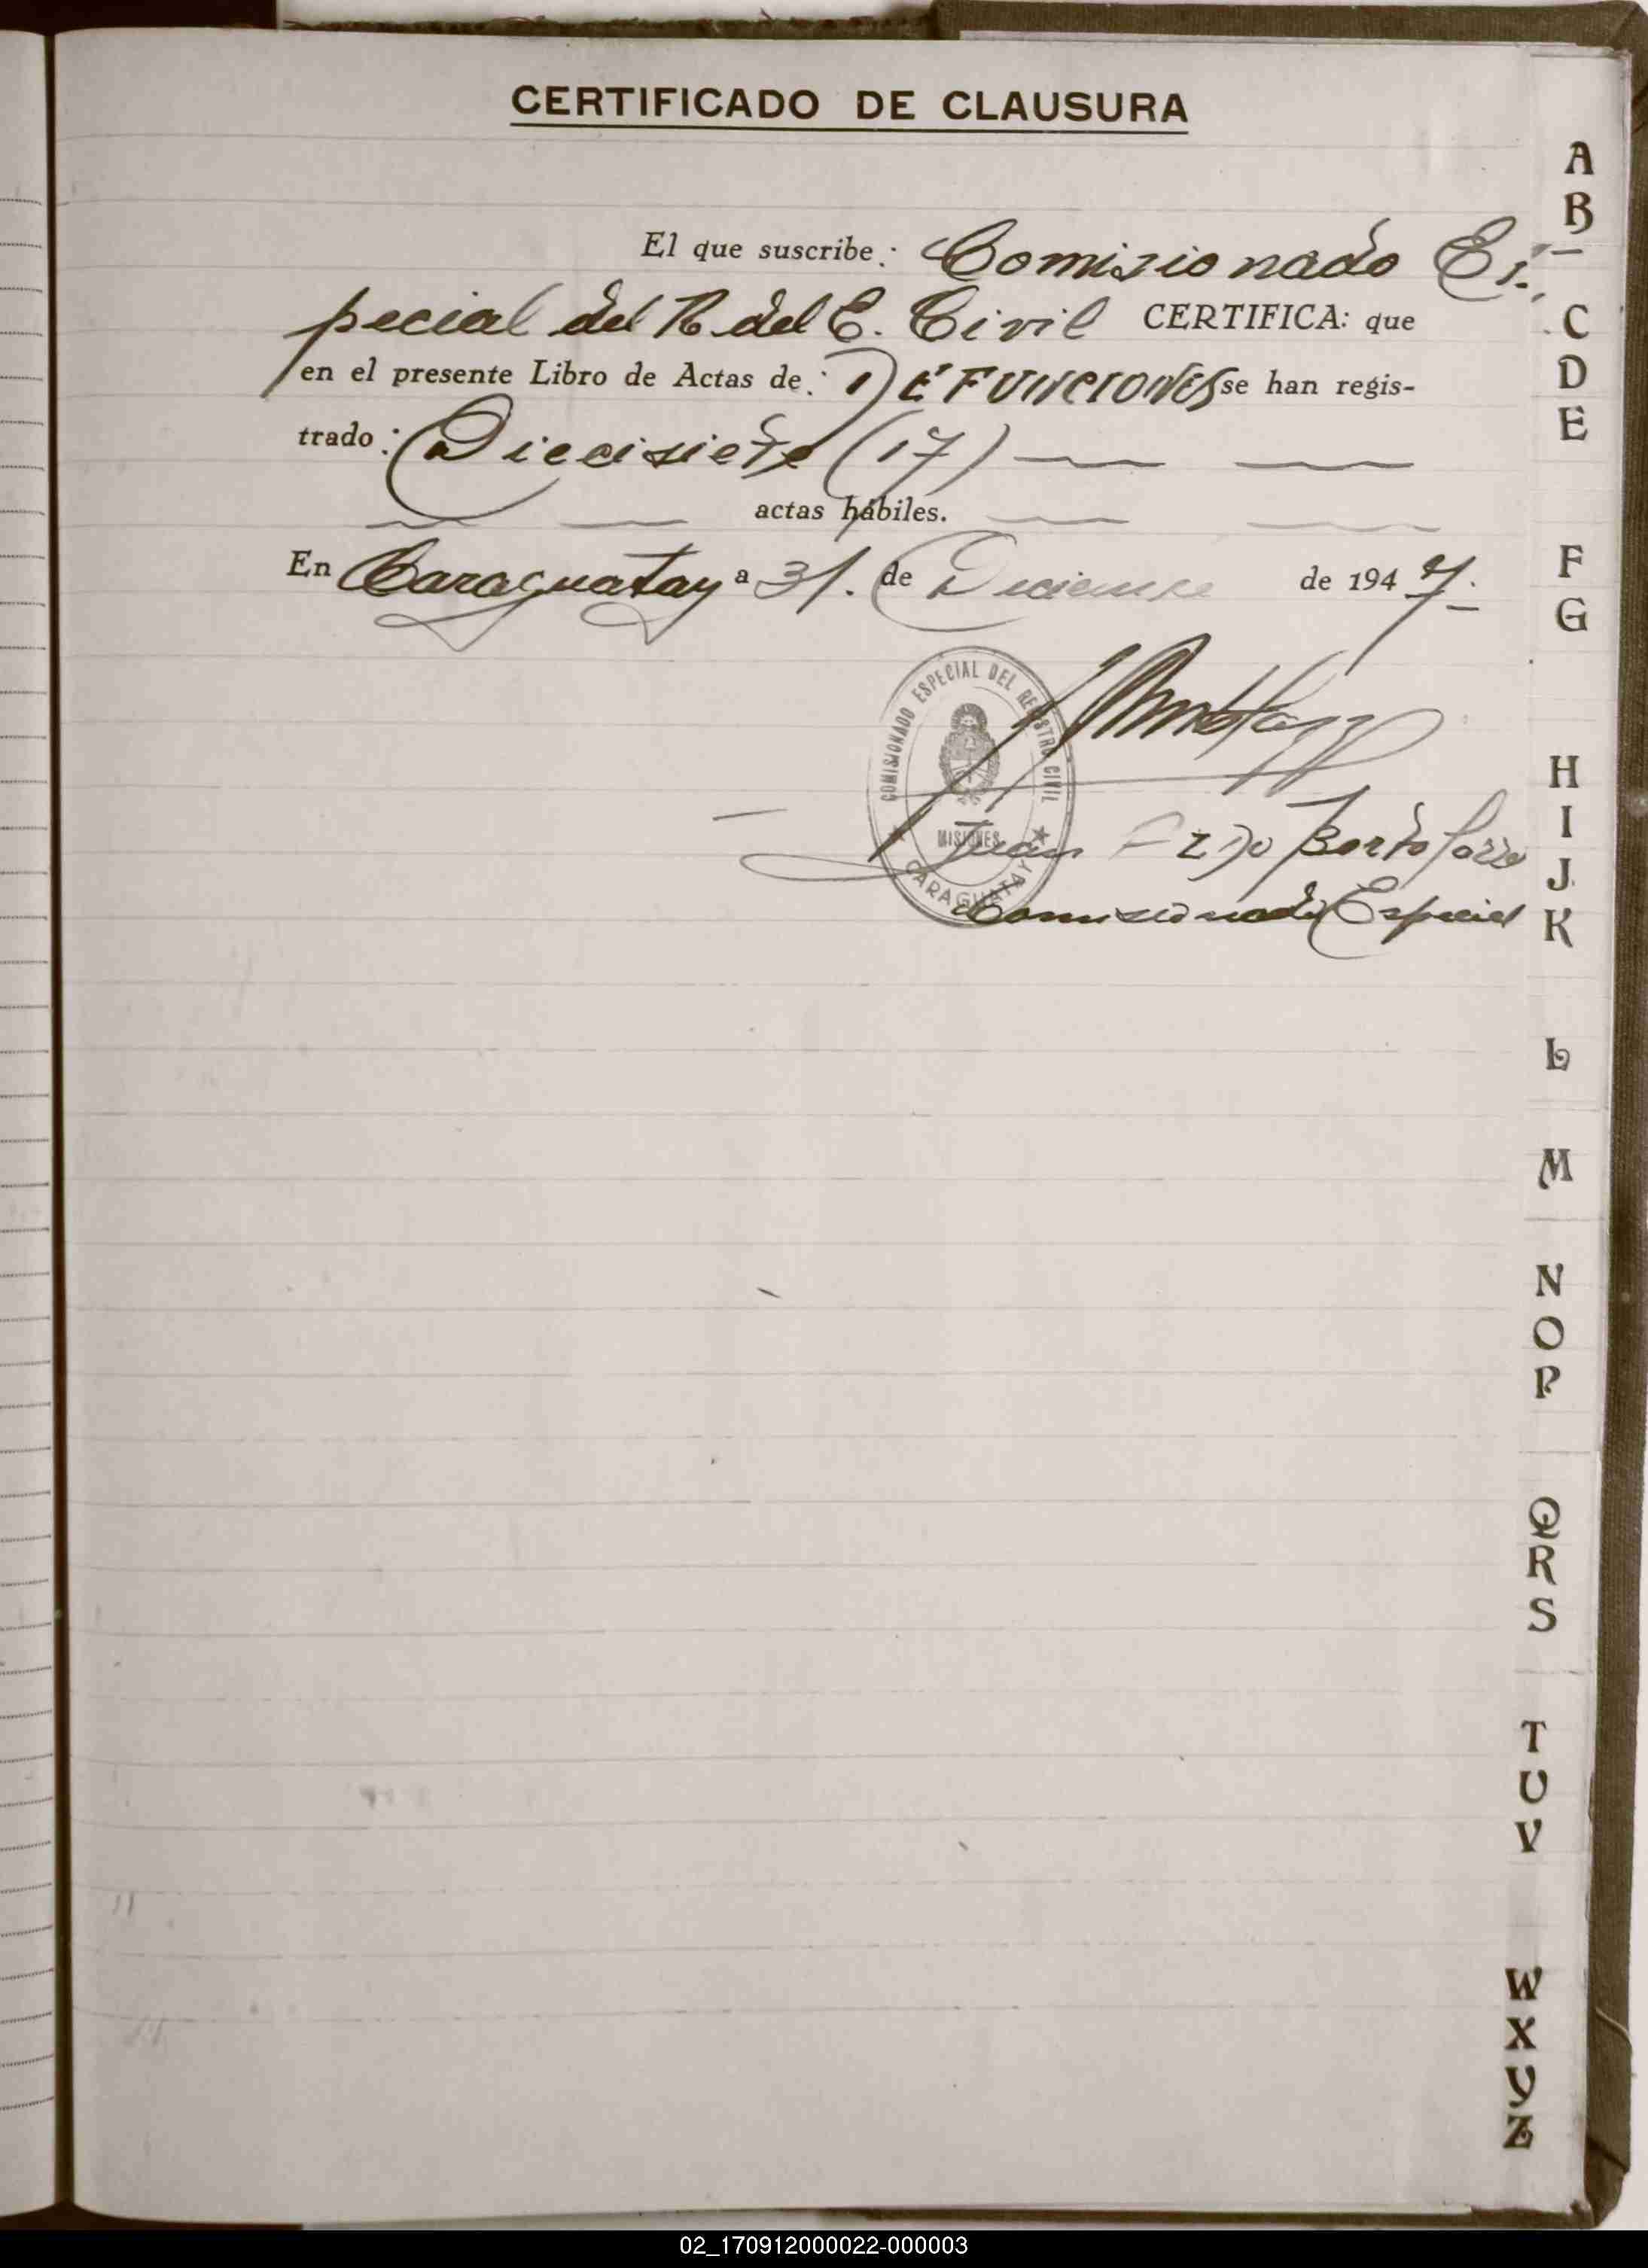 CERTIFICADO DE CLAUSURA
El que suscribe: Comisionado Es-
pecial del R del E. Civil CERTIFICA: que
en el presente Libro de Actas de: DEFUNCIONES se han regis-
trado: Diecisiete (17)
actas hábiles.
En Caraguatay a 31. de Diciembre de 1947.
COMISIONADO ESPECIAL DEL REGISTRO CIVIL
MISIONES
CARAGUATAY
Juan
Comisionado Especial
A
B
C
D
E
F
G
H
I
J
K
L
M
N
O
P
Q
R
S
T
U
V
W
X
Y
Z
02_170912000022-000003